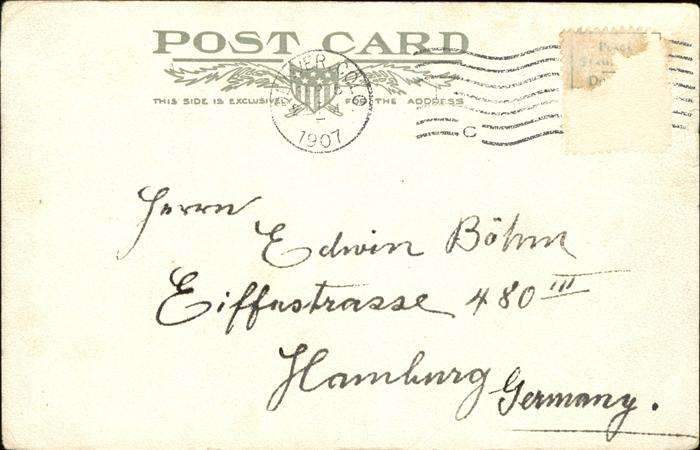 POST CARD
THIS SIDE IS EXCLUSIVELY FOR THE ADDRESS
DENVER COLO
1907
C
Place
Herrn
Edwin Böhm
Eiffestrasse 480 III
Hamburg Germany.